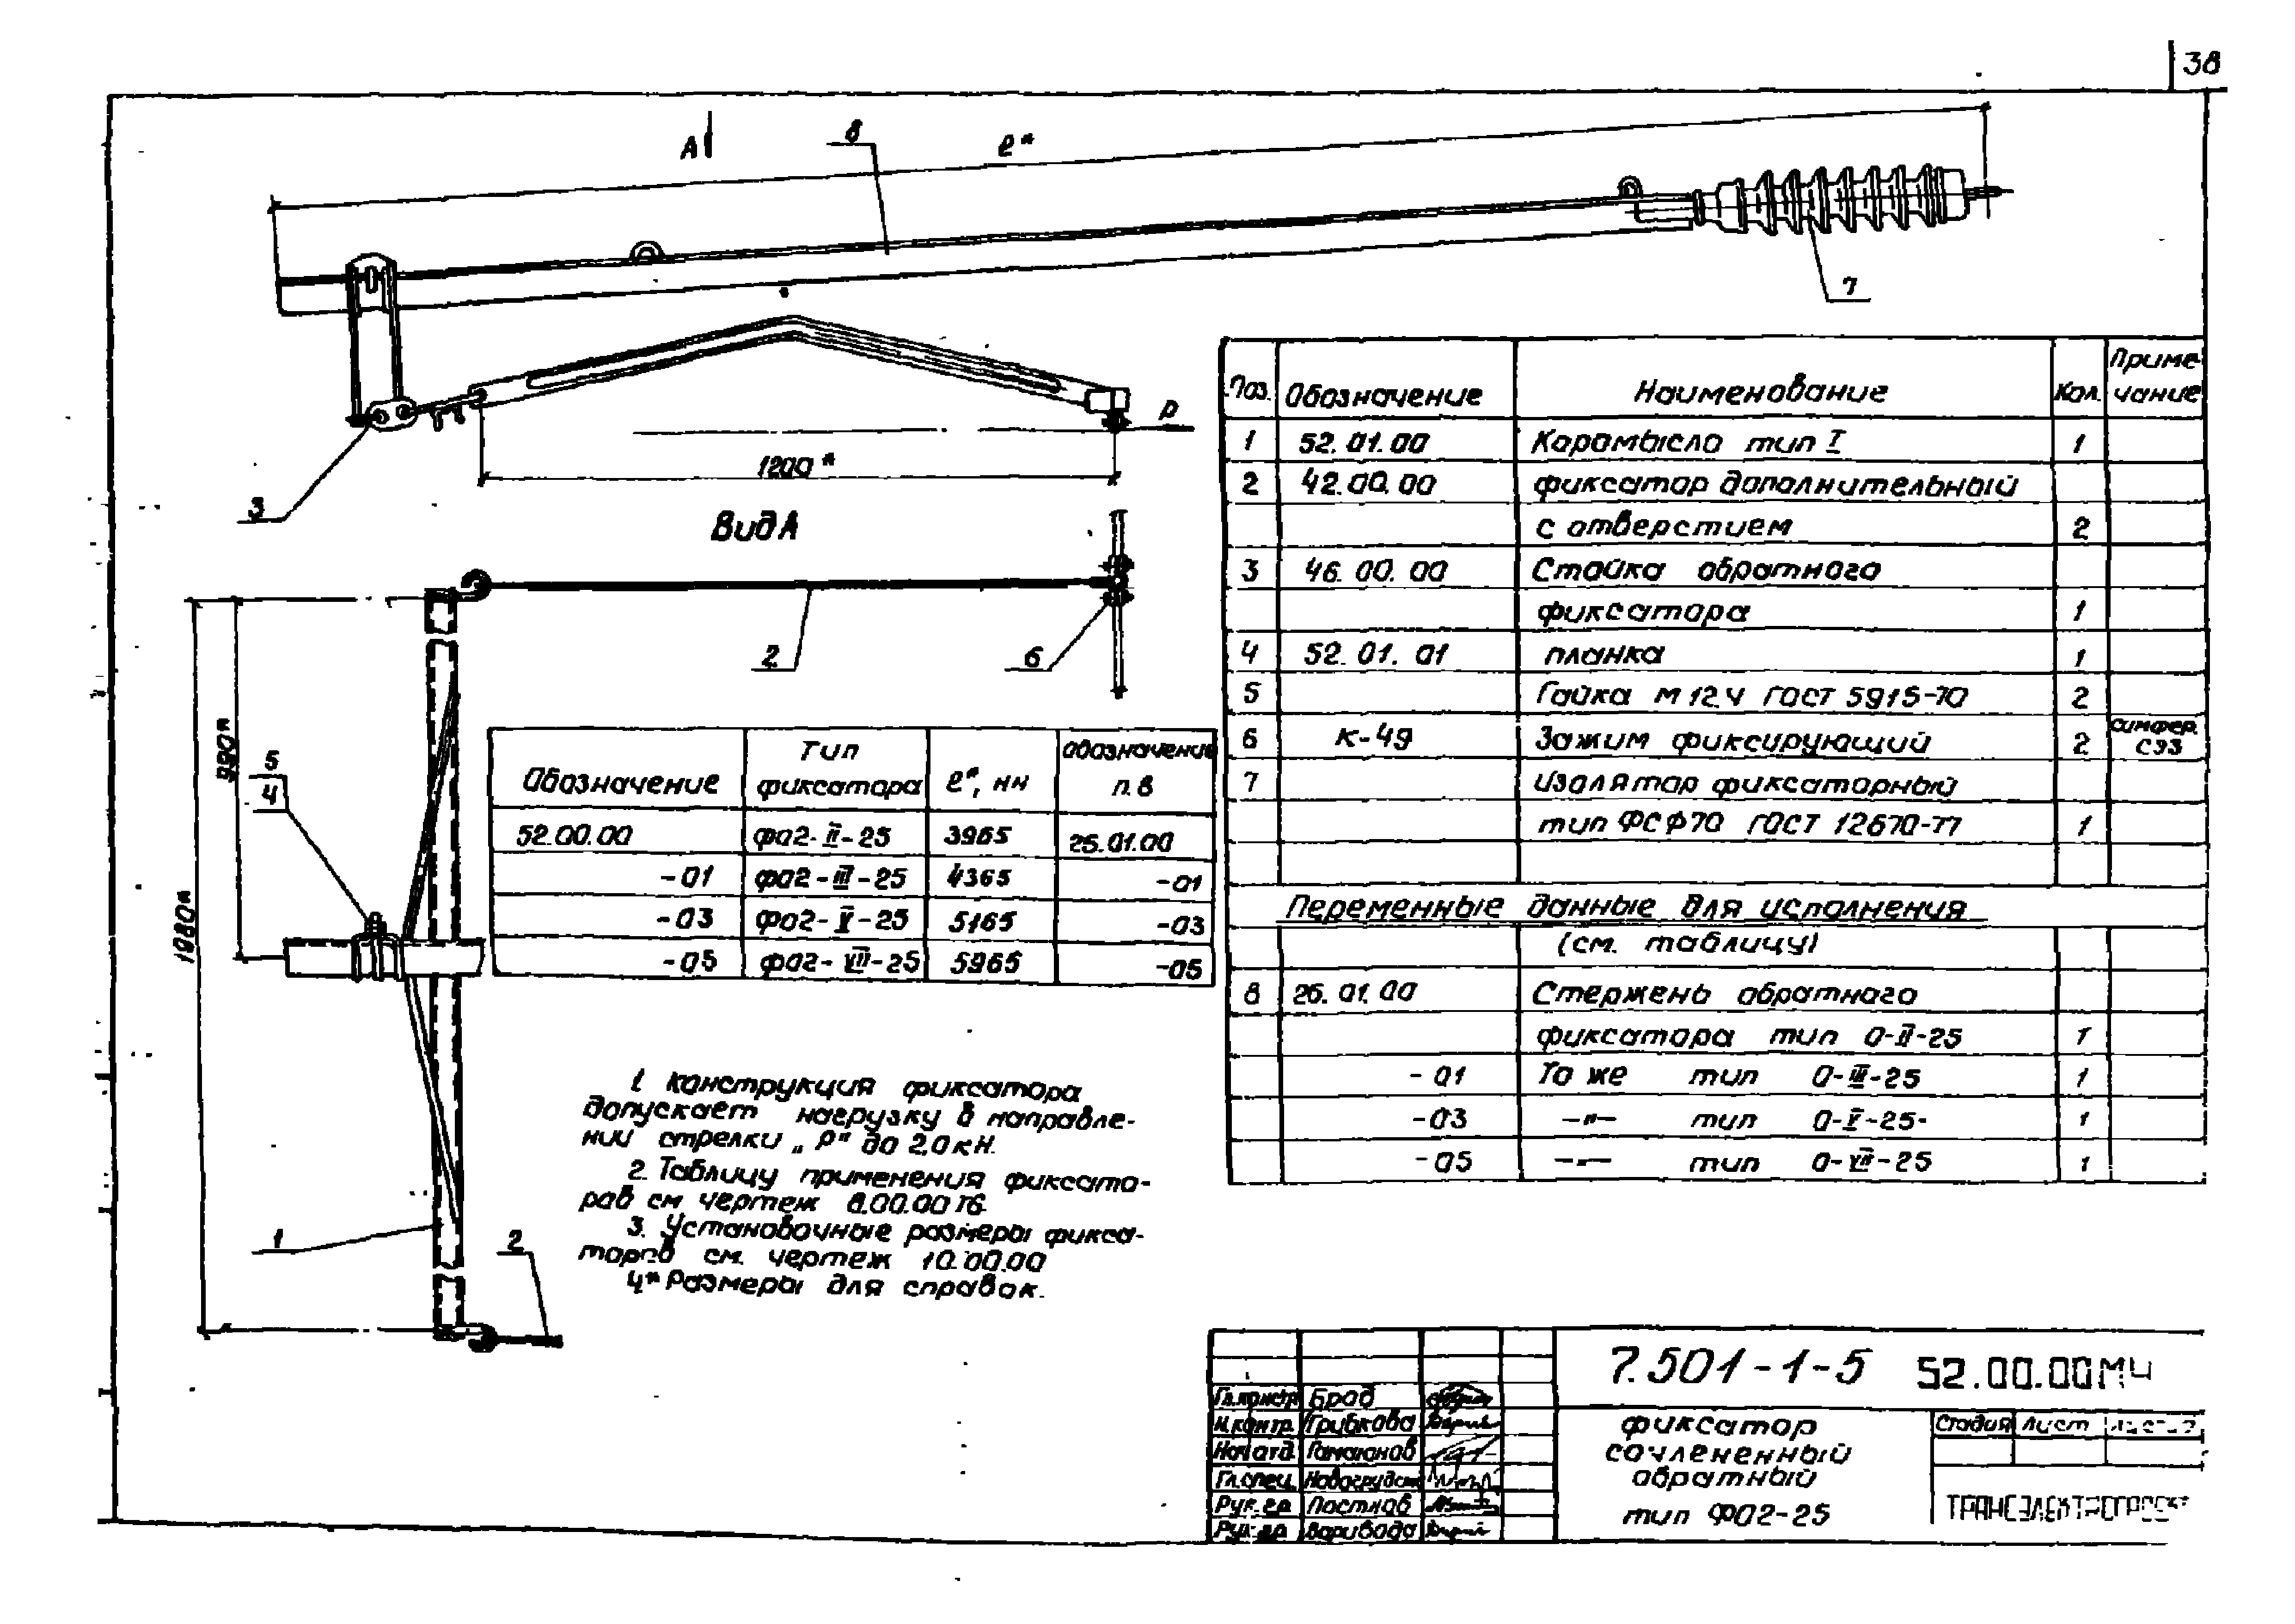 38
А
8
ℓ*
7
Р
1200*
3
Вид А
2
6
990*
1980*
5
4
1
2
Обозначение | Тип фиксатора | ℓ*, мм | Обозначение п.8
52.00.00 | ФО2-II-25 | 3965 | 26.01.00
-01 | ФО2-III-25 | 4365 | -01
-03 | ФО2-V-25 | 5165 | -03
-05 | ФО2-VII-25 | 5965 | -05
1 Конструкция фиксатора
допускает нагрузку в направле-
нии стрелки „Р" до 2,0 кН.
2. Таблицу применения фиксато-
ров см чертеж 8.00.00 Т6.
3. Установочные размеры фикса-
торов см. чертеж 10.00.00
4* Размеры для справок.
Поз. | Обозначение | Наименование | Кол. | Приме-чание
1 | 52.01.00 | Коромысло тип I | 1
2 | 42.00.00 | Фиксатор дополнительный
с отверстием | 2
3 | 46.00.00 | Стойка обратного
фиксатора | 1
4 | 52.01.01 | Планка | 1
5 | Гайка М12.4 ГОСТ 5915-70 | 2
6 | К-49 | Зажим фиксирующий | 2 | Симфер. СЭЗ
7 | Изолятор фиксаторный
тип ФСФ70 ГОСТ 12670-77 | 1
Переменные данные для исполнения
(см. таблицу)
8 | 26.01.00 | Стержень обратного
фиксатора тип О-II-25 | 1
-01 | То же тип О-III-25 | 1
-03 | —"— тип О-V-25- | 1
-05 | —"— тип О-VII-25 | 1
7.501-1-5 52.00.00МЧ
Гл.констр. Брод
Н.контр. Грибкова
Нач.отд.
Гл.спец.
Рук.гр. Постнов
Рук.гр. Варивода
Фиксатор
сочлененный
обратный
тип ФО2-25
Стадия Лист Листов
ТРАНСЭЛЕКТРОПРОЕКТ